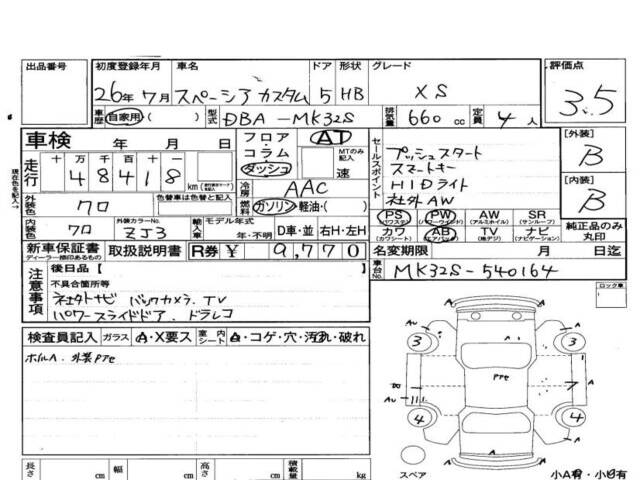 出品番号 初度登録年月 車名 ドア 形状 グレード 評価点
26年 7月 スペーシア カスタム 5 HB XS 3.5
車歴 自家用 ( ) 型式 DBA-MK32S 排気量 660 cc 定員 4人
車検 年 月 日 フロア・コラム・ダッシュ AT MTのみ記入 速
走行 十 万 千 百 十 一
4 8 4 1 8 km
冷房 AAC
セールスポイント プッシュスタート
スマートキー
HIDライト
社外AW
[外装] B
[内装] B
現在色を記入→
外装色 クロ 色替車は色替と記入 燃料 ガソリン・軽油・( )
内装色 クロ 外装カラーNo. ZJ3 輸入車 モデル年式 年・不明 D車・並 右H・左H
PS (パワステ) PW (パワーウィンドウ) AW (アルミホイル) SR (サンルーフ)
カワ (カワシート) AB (エアバッグ) TV (地デジ) ナビ (ナビゲーション)
純正品のみ丸印
新車保証書 ディーラー捺印あるもの 取扱説明書 R券 ¥ 9,770 名変期限 月 日迄
車台No. MK32S-540164
注意事項 後日品 [ ]
不具合箇所等
社外ナビ バックカメラ. TV
パワースライドドア. ドラレコ
ロック車
検査員記入 ガラス A・X要ス 室内シート A・コゲ・穴・汚れ・破れ
ホイルA. 外装PTe
AU A A
3 3
PTe
B 7 A
AU
4 4
A A
スペア
小A有・小B有
長さ cm 幅 cm 高さ cm 積載量 kg